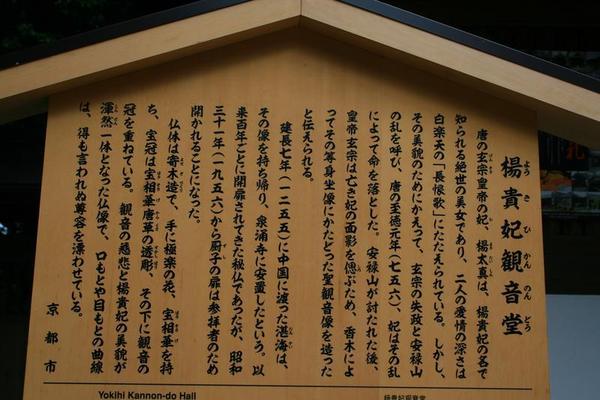 楊貴妃観音堂
ようきひかんのんどう
唐の玄宗皇帝の妃、楊太真は、楊貴妃の名で
知られる絶世の美女であり、二人の愛情の深さは
白楽天の「長恨歌」にたたえられている。しかし、
その美貌のためにかえって、玄宗の失政と安禄山
の乱を呼び、唐の至徳元年(七五六)、妃はその乱
によって命を落とした。安禄山が討たれた後、
皇帝玄宗は亡き妃の面影を偲ぶため、香木によ
ってその等身坐像にかたどった聖観音像を造った
と伝えられる。
建長七年(一二五五)に中国に渡った湛海は、
その像を持ち帰り、泉涌寺に安置したという。以
来百年ごとに開扉されてきた秘仏であったが、昭和
三十一年(一九五六)から厨子の扉は参拝者のため
開かれることになった。
仏体は寄木造で、手に極楽の花、宝相華を持
ち、宝冠は宝相華唐草の透彫、その下に観音の
冠を重ねている。観音の慈悲と楊貴妃の美貌が
渾然一体となった仏像で、口もとや目もとの曲線
は、得も言われぬ尊容を漂わせている。
京都市
Yokihi Kannon-do Hall